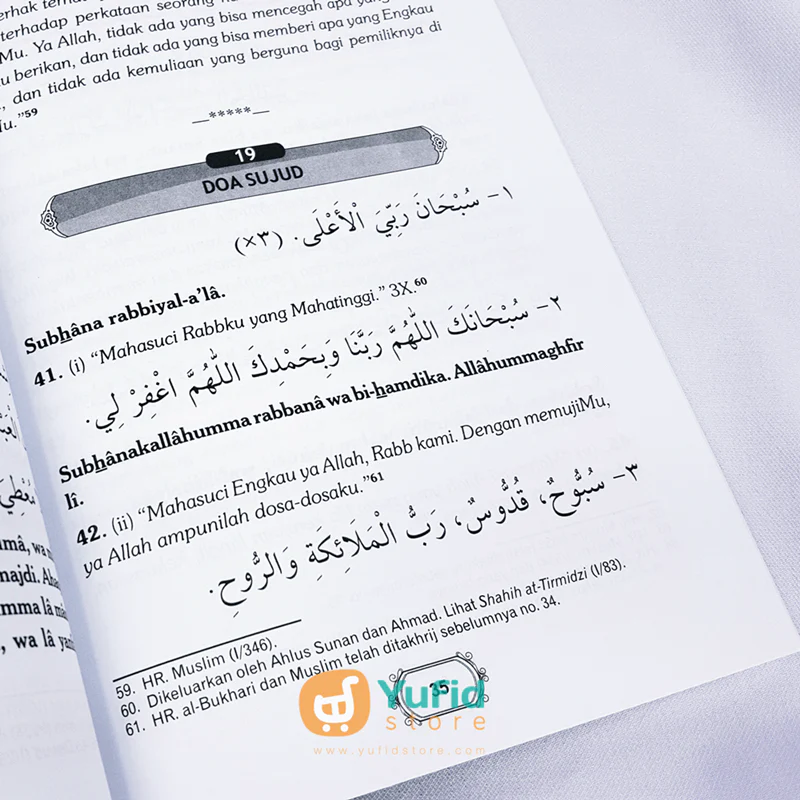 terhadap perkataan seorang
Mu. Ya Allah, tidak ada yang bisa mencegah apa yang
berikan, dan tidak ada yang bisa memberi apa yang Engkau
dan tidak ada kemuliaan yang berguna bagi pemiliknya di
Mu."59
—*****—
19
DOA SUJUD
١- سُبْحَانَ رَبِّيَ الْأَعْلَى. (٣×)
Subhâna rabbiyal-a'lâ.
41. (i) "Mahasuci Rabbku yang Mahatinggi." 3X.60
٢- سُبْحَانَكَ اللَّهُمَّ رَبَّنَا وَبِحَمْدِكَ اللَّهُمَّ اغْفِرْ لِي.
Subhânakallâhumma rabbanâ wa bi-hamdika. Allâhummaghfir
lî.
42. (ii) "Mahasuci Engkau ya Allah, Rabb kami. Dengan memujiMu,
ya Allah ampunilah dosa-dosaku."61
٣- سُبُّوحٌ، قُدُّوسٌ، رَبُّ الْمَلَائِكَةِ وَالرُّوحِ.
59. HR. Muslim (I/346).
60. Dikeluarkan oleh Ahlus Sunan dan Ahmad. Lihat Shahih at-Tirmidzi (I/83).
61. HR. al-Bukhari dan Muslim telah ditakhrij sebelumnya no. 34.
35
Yufid
store
www.yufidstore.com
wa
majdi.
wa lâ